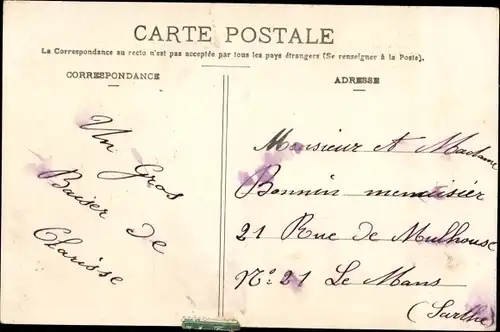 CARTE POSTALE
La Correspondance au recto n'est pas acceptée par tous les pays étrangers (Se renseigner à la Poste).
CORRESPONDANCE
Un Gros
Baiser de
Clarisse
ADRESSE
Monsieur et Madame
Bonnin menuisier
21 Rue de Mulhouse
N° 21 Le Mans
(Sarthe)